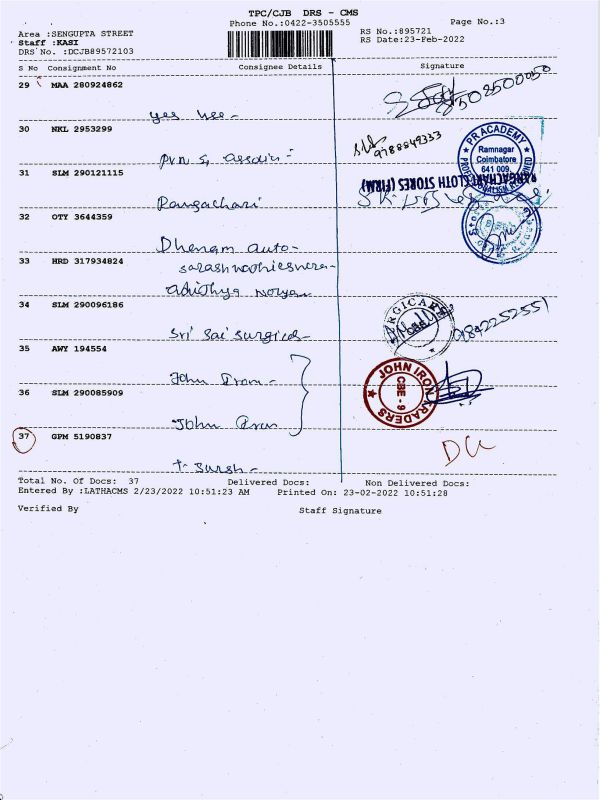 TPC/CJB DRS - CMS
Phone No.:0422-3505555
Page No.:3
Area :SENGUPTA STREET
RS No.:895721
Staff :KASI
RS Date:23-Feb-2022
DRS No. :DCJB89572103
S No Consignment No Consignee Details Signature
29 MAA 280924862
8502500050
yes vee
30 NKL 2953299
9788849333
31 SLM 290121115
Rangachari
PR ACADEMY
Ramnagar
Coimbatore
641 009.
RANGACHARI CLOTH STORES (FIRM)
32 OTY 3644359
Dhanam auto
33 HRD 317934824
34 SLM 290096186
Sri Sai Surgicals
9842252551
35 AWY 194554
John Iron
JOHN IRON TRADERS
CBE - 9
36 SLM 290085909
John Iron
37 GPM 5190837
T. Sursh
Total No. Of Docs: 37 Delivered Docs: Non Delivered Docs:
Entered By :LATHACMS 2/23/2022 10:51:23 AM Printed On: 23-02-2022 10:51:28
Verified By Staff Signature